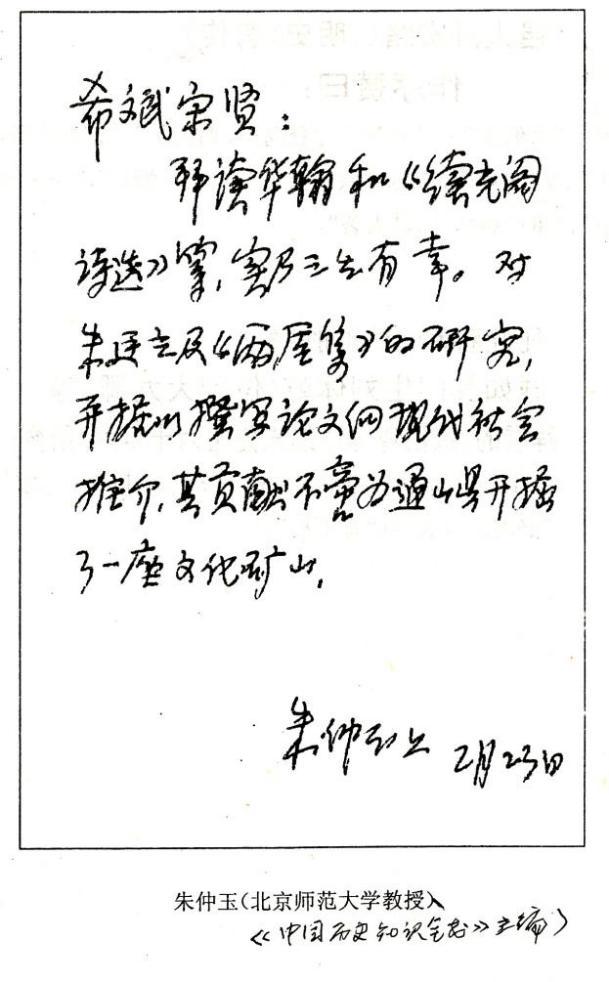 希文斌宗贤：
拜读华翰和《续光阁
诗选》等，实乃三生有幸。对
朱廷立及《两厓集》的研究，
开掘以撰写论文向现代社会
推介，其贡献不啻为通山县开掘
了一座文化矿山，
朱仲玉上 2月23日
朱仲玉(北京师范大学教授)、
《中国历史知识全书》主编)